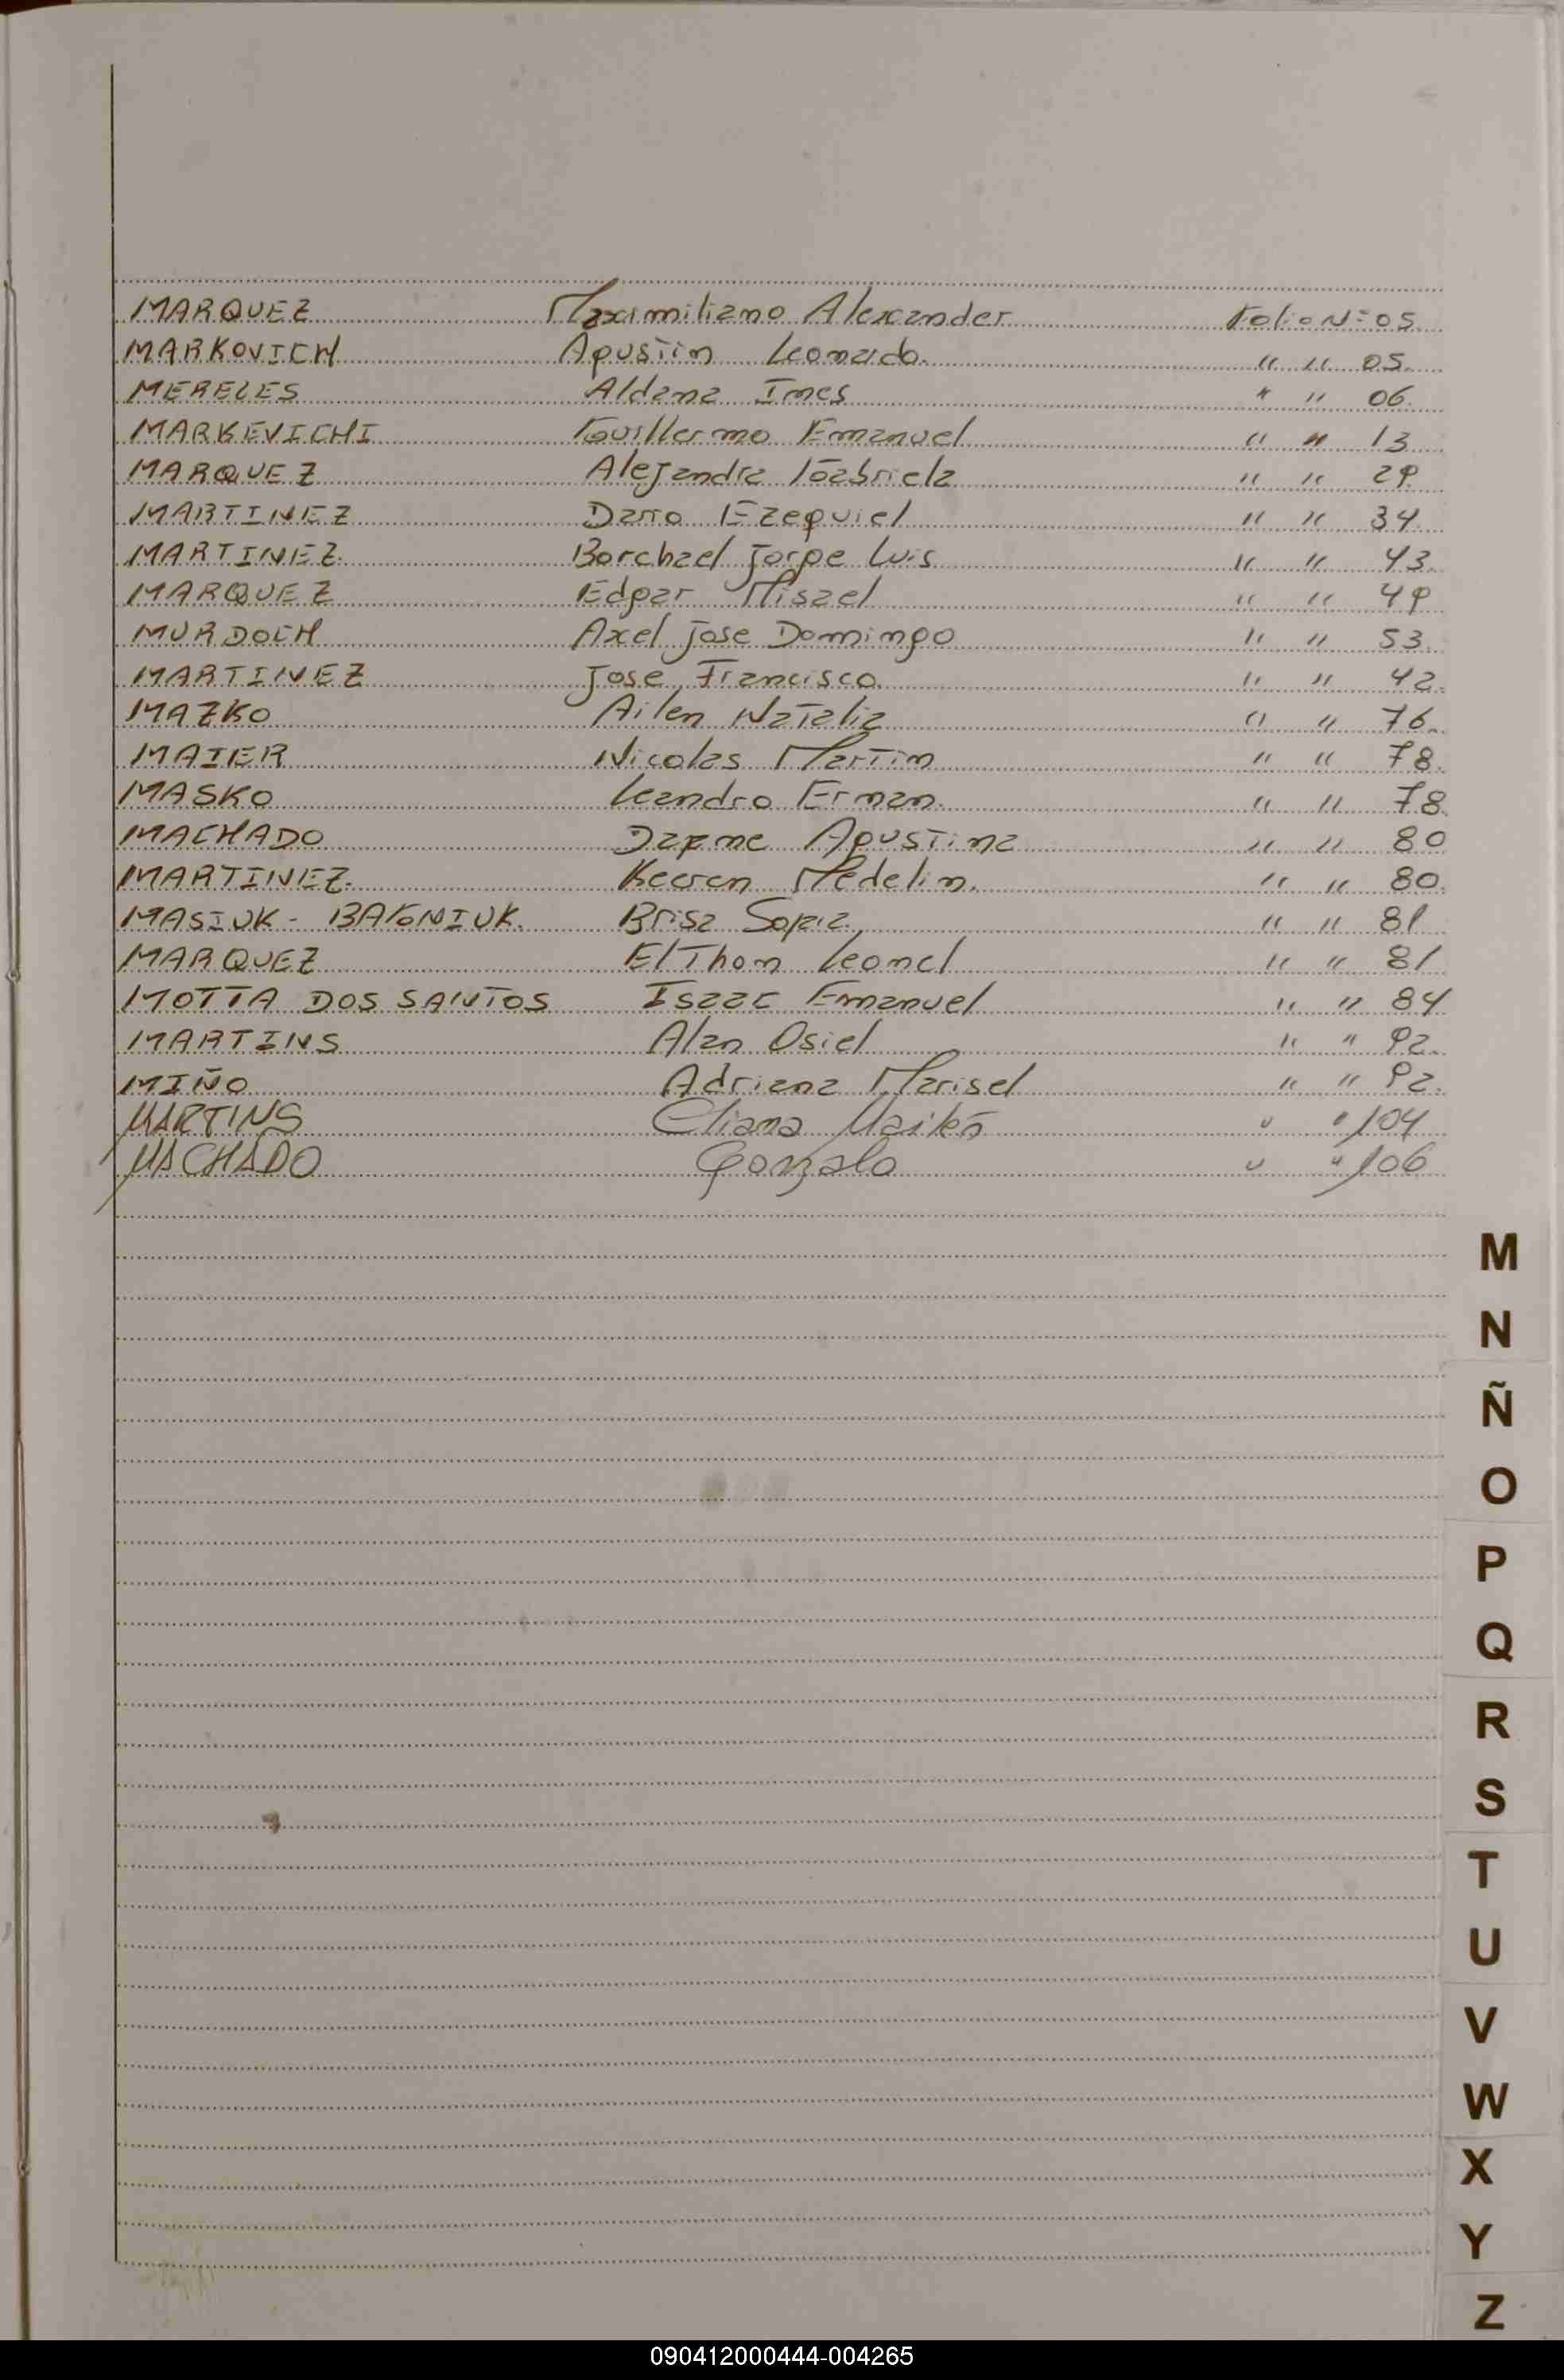 MARQUEZ Maximiliano Alexander Folio Nº 05
MARKOVICH Agustin Leonardo. " " 05.
MERELES Aldana Ines " " 06
MARKEVICHI Guillermo Emanuel " " 13
MARQUEZ Alejandra Gabriela " " 29
MARTINEZ Dario Ezequiel " " 34
MARTINEZ. Borchael Jorge Luis " " 43.
MARQUEZ Edgar Misael " " 49
MURDOCH Axel Jose Domingo " " 53.
MARTINEZ Jose Francisco. " " 42.
MAZKO Ailen Natalia " " 76.
MAIER Nicolas Martin " " 78.
MASKO Leandro Ernan. " " 78.
MACHADO Dafne Agustina " " 80
MARTINEZ. Keeren Medelin. " " 80.
MASIUK - BAGONIUK. Brisa Sofia. " " 81
MARQUEZ ElThon Leonel " " 81
MOTTA DOS SANTOS Isaac Emanuel " " 84
MARTINS Alan Osiel " " 92.
MIÑO Adriana Marisel " " 92.
MARTINS Eliana Maitén " " 104
MACHADO Gonzalo " " 106
M
N
Ñ
O
P
Q
R
S
T
U
V
W
X
Y
Z
090412000444-004265